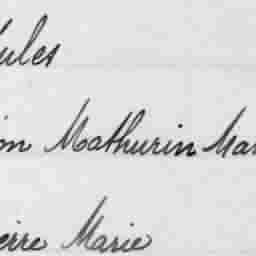 Jules
on Mathurin Mar
ierre Marie